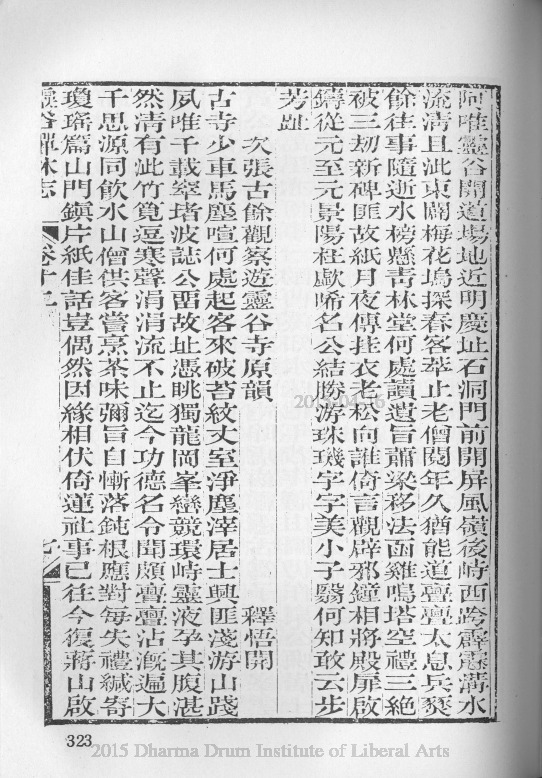 阿唯靈谷開道場地近明慶址石洞門前開屏風嶺後峙西跨霹靂溝水
流清且泚東闢梅花塢探春客萃止老僧閱年久猶能道亹亹太息兵燹
餘往事隨逝水榜懸青林堂何處讀遺旨蕭梁移法函雞鳴塔空禮三絕
被三劫新碑匪故紙月夜傳挂衣老松向誰倚言觀辟邪鐘相將殿扉啟
鑄從元至元景陽枉歔唏名公結勝游珠璣字字美小子翳何知敢云步
芳趾
次張古餘觀察遊靈谷寺原韻 釋悟開
古寺少車馬塵喧何處起客來破苔紋丈室淨塵滓居士興匪淺游山踐
夙唯千載窣堵波誌公畱故址憑眺獨龍岡峯巒競環峙靈液孕其腹湛
然清有泚竹筧逗寒聲涓涓流不止迄今功德名令聞頗亹亹沾漑遍大
千思源同飲水山僧供客嘗烹茶味彌旨自慚落鈍根應對每失禮緘寄
瓊瑤篇山門鎭片紙佳話豈偶然因緣相伏倚蓮社事已往今復蔣山啟
靈谷禪林志 卷十二 七
323
2015 Dharma Drum Institute of Liberal Arts